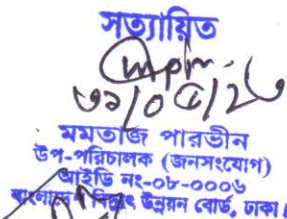 সত্যায়িত
৩১/০৫/২৬
মমতাজ পারভীন
উপ-পরিচালক (জনসংযোগ)
আইডি নং-০৮-০০০৬
বাংলাদেশ বিদ্যুৎ উন্নয়ন বোর্ড, ঢাকা।